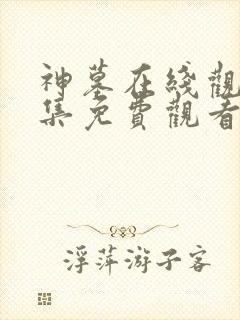 神墓在綫觀
集免費觀看
浮萍游子客